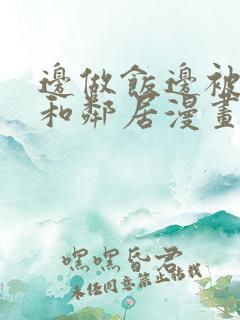 邊做飯邊被
和鄰居漫畫
嘿嘿昏君
未经同意禁止转载